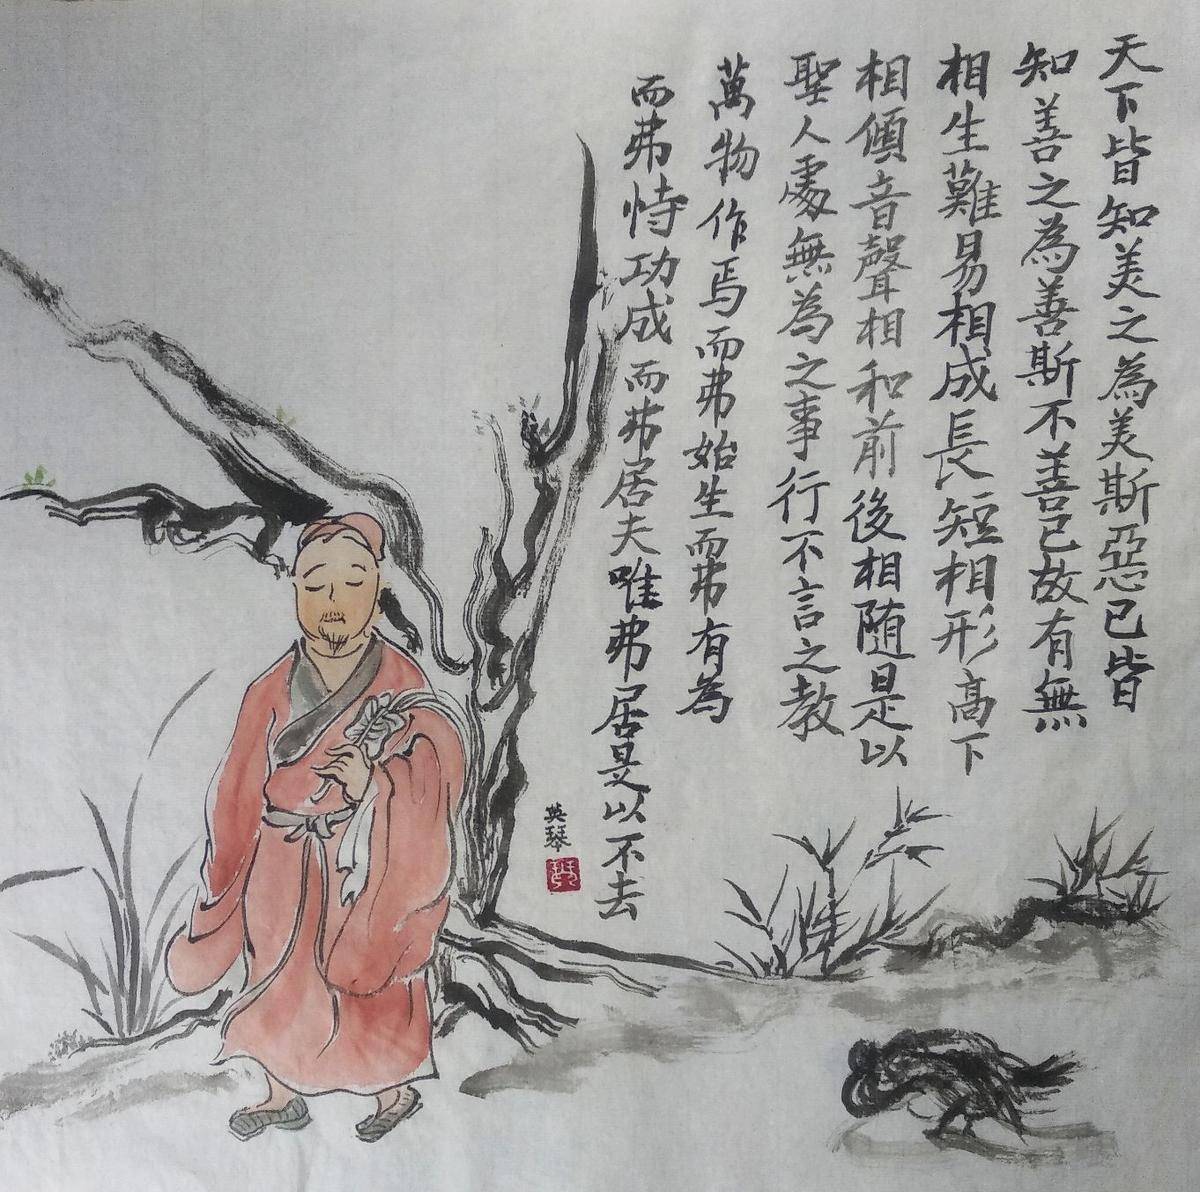 天下皆知美之為美斯惡已皆
知善之為善斯不善已故有無
相生難易相成長短相形高下
相傾音聲相和前後相随是以
聖人處無為之事行不言之教
萬物作焉而弗始生而弗有為
而弗恃功成而弗居夫唯弗居是以不去
英琴